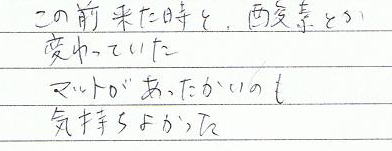 この前来た時と、酵素とか
変わっていた
マットがあったかいのも
気持ちよかった